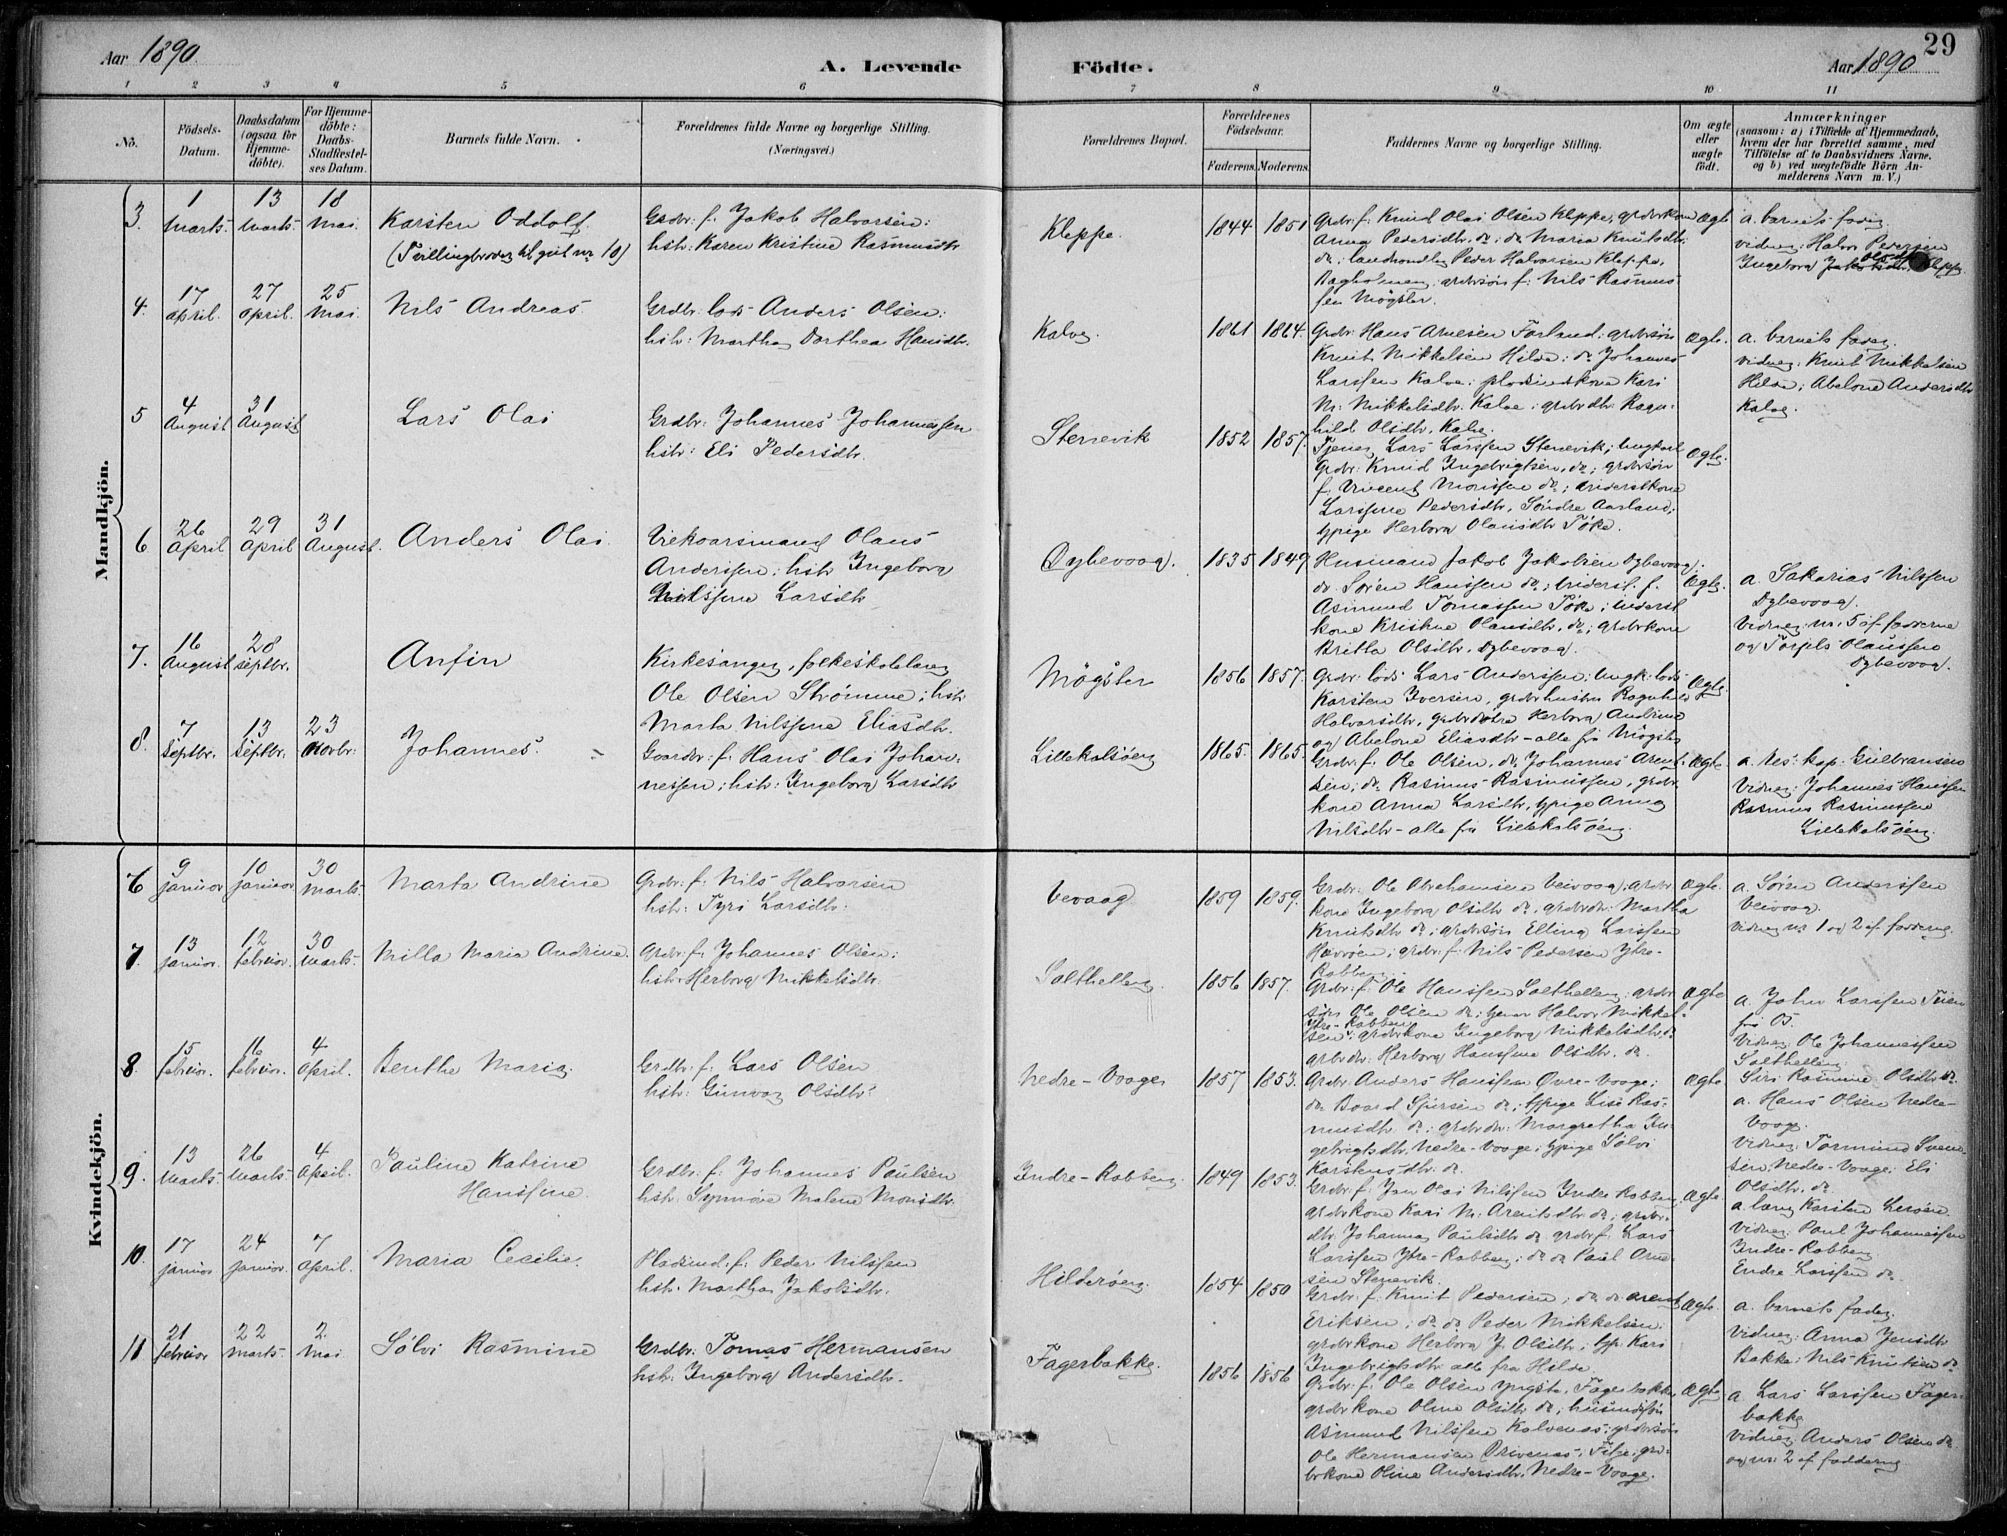 Aar 1890.
A. Levende
Födte.
Aar 1890
29
1
2
3
4
5
6
7
8
9
10
11
No.
Födsels-
Datum.
Daabsdatum
(ogsaa for
Hjemme-
döbte).
For Hjemme-
döbte:
Daabs-
Stadfestel-
ses Datum.
Barnets fulde Navn.
Forældrenes fulde Navne og borgerlige Stilling.
(Næringsvei.)
Forældrenes Bopæl.
Forældrenes
Födselsaar.
Faderens.
Moderens.
Faddernes Navne og borgerlige Stilling.
Om ægte
eller
uægte
födt.
Anmærkninger
(saasom: a) i Tilfælde af Hjemmedaab,
hvem der har forrettet samme, med
Tilföielse af to Daabsvidners Navne,
og b) ved uægtefödte Börn An-
melderens Navn m. V.)
Mandkjön.
3. 1 Marts. 13 Marts. 18 Mai. Karsten Oddolf.
(Tvillingbroder til gut nr 10)
Grdbr. f. Jakob Halvorsen:
hstr: Karen Kristine Rasmusdtr
Kleppe. 1844 1851
Grdbr. f. Knud Olai Olsen Kleppe, grdbrkone
Anna Pedersdtr. do; do Maria Knutsdtr.
do; landhandler Peder Halvorsen Kleppe,
grdbrsön f. Nils Rasmus-
sen Mögster.
Ægte
a. barnets fader
vidner: Halvor Pedersen
Ingeborg Kleppe.
4. 17 April. 27 April. 25 Mai. Nils Andreas
Grdbr. lods Anders Olsen:
hstr: Martha Dorthea Hansdtr.
Kalve. 1861 1864.
Grdbr. Hans Arnesen Forland; grdbrsön
Knut Mikkelsen Hilde; do Johannes
Larssen Kalve; pladsindskone Kari
M. Mikkelsdtr. Kalve; grdbrdtr. Ragn-
hild Olsdtr. Kalve.
Ægte.
a. barnets fader.
vidner: Knut Mikkelsen
Hilde; Abelone Andersdtr
Kalve.
5 4 August 31 August Lars Olai
Grdbr: Johannes Johannessen
hstr: Eli Pedersdtr.
Stenevik 1852 1857.
Tjener Lars Larssen Stenevik; ungkarl
Grdbr. Knud Ingebrigtsen, do; grdbrsön
f. Vincent Monssen do; inderstkone
Larssine Pedersdtr, Söndre Aarland;
t.pige Herborg Olausdtr Töke.
Ægte.
6 26 April 29 April 31 August. Anders Olai.
Olaus
Anderssen; hstr Ingeborg
Nilssine Larsdtr
Dybevaag. 1835 1849
Husmand Jakob Jakobsen Dybevaag;
do Sören Hanssen do; inderst. f.
Asmund Tomassen Töke; inderst
kone Kristine Olausdtr, do; grdbrkone
Britha Olsdtr. Dybevaag.
Ægte.
a. Sakarias Nilssen
Dybevaag.
Vidner: nr. 5 af fadderne
og Torjels Olaussen
Dybevaag.
7. 16 August 28 Septbr. Anfin
Kirkesanger, folkeskolelærer
Ole Olsen Strömme; hstr
Marta Nilssine Eliasdtr.
Mögster 1856 1857.
Grdbr. lods Lars Anderssen; ungk. lods
Karsten Iversen, grdbrhustru Ragnhild
Halvorsdtr, grdbrdötre Herborg Andrine
og Abelone Eliasdtr - alle fra Mögster
Ægte.
8. 7 Septbr. 13 Septbr. 23 Novbr: Johannes.
Gaardbr. f. Hans Olai Johan-
nessen; hstr: Ingeborg Larsdtr
Lillekalsöen 1865. 1865.
Grdbr. f. Ole Olsen, do Johannes Arent-
sen; do Rasmus Rasmussen, grdbr.
kone Anna Larsdtr, t.pige Anna
Nilsdtr - alle fra Lillekalsöen.
Ægte.
a. Res: kap: Gulbransen
Vidner: Johannes Hanssen
Rasmus Rasmussen
Lillekalsöen.
Kvindekjön.
6 9 januar 10 januar 30 Marts. Marta Andrine
Grdbr. f. Nils Halvorsen
hstr: Tyri Larsdtr.
Vevaag 1859 1859.
Grdbr: Ole Abrahamsen Veivaag; grdbr.
kone Ingeborg Olsdtr do, grdbrdtr. Martha
Knutsdtr do; grdbrsön Elling Larssen
Havröen; grdbr. f. Nils Pedersen Ytre-
Robben.
Ægte.
a. Sören Anderssen
Veivaag.
vidner nr 1 og 2 af fadderne.
7. 13 januar. 12 februar. 30 Marts. Milla Maria Andrine.
Grdbr. f. Johannes Olsen:
hstr. Herborg Mikkelsdtr.
Solthellen. 1856 1857.
Grdbr. f. Ole Hanssen Solthellen; grdbr
sön Ole Olsen do; tjener Halvor Mikkel-
sen Ytre-Robben; grdbrkone Ingeborg Mikkelsdtr. do
grdbrdtr. Herborg Hanssine Olsdtr. do.
Ægte
a. John Larssen Teien
fra Os.
Vidner: Ole Johannessen
Solthellen
Siri Rasmine Olsdtr do.
8. 15 februar. 16 februar. 4 April. Benthe Maria
Grdbr. f. Lars Olsen
hstr: Gunvor Olsdtr.
Nedre-Vaage 1857 1853.
Grdbr. Anders Hanssen Övre-Vaage;
do Baard Sjursen do; t.pige Lise Ras-
musdtr do; grdbrdtr. Margretha In-
gebrigtsdtr. Nedre-Vaage; t.pige Sölvi
Karstensdtr. do.
Ægte
a. Hans Olsen Nedre-
Vaage.
Vidner: Tormund Svend-
sen, Nedre-Vaage; Eli
Olsdtr. do.
9. 13 Marts. 26 Marts. 4 April. Pauline Katrine
Hanssine.
Grdbr: f. Johannes Paulsen
hstr: Synnöve Malene Monsdtr.
Indre-Robben. 1849 1853.
Grdbr. f. Jon Olai Nilssen Indre Robben,
grdbrkone Kari M. Arentsdtr do; grdbr.
dtr. Johanna Paulsdtr do grdbr. f. Lars
Larssen Ytre-Robben; do do Paul Arne-
sen Stenevik.
Ægte.
a. lærer Karsten Leröen.
vidner: Paul Johannessen
Indre-Robben
Endre Larssen do.
10. 17 januar 24 januar. 7 April. Maria Cecilie.
Pladsind. f. Peder Nilssen
hstr. Martha Jakobsdtr.
Hilderöen. 1854 1850
Grdbr. f. Knut Pedersen; do do Arent
Eriksen, do do Peder Mikkelsen.
grdbrkone Herborg J. Olsdtr; t.p. Kari
Ingebrigtsdtr alle fra Hilde.
Ægte.
a. barnets fader.
vidner: Anna Jensdtr
Bakke; Nils Knutsen do
11 21 februar 22 Marts. 2. Mai Sölvi Rasmine
Grdbr: Tomas Hermansen
hstr: Ingeborg Andersdtr.
Fagerbakke. 1856 1856
Grdbr. f. Ole Olsen yngste, Fagerbakke,
grdbrkone Oline Olsdtr do; husmdsön
Asmund Nilssen Kalvenæs; grdbrsön
Ole Hermansen Drivenæs, Fitje; grd-
brkone Oline Andersdtr, Nedre-Vaage.
Ægte
a Lars Larssen Fager-
bakke
vidner: Anders Olsen do
og nr: 2 af fadderne